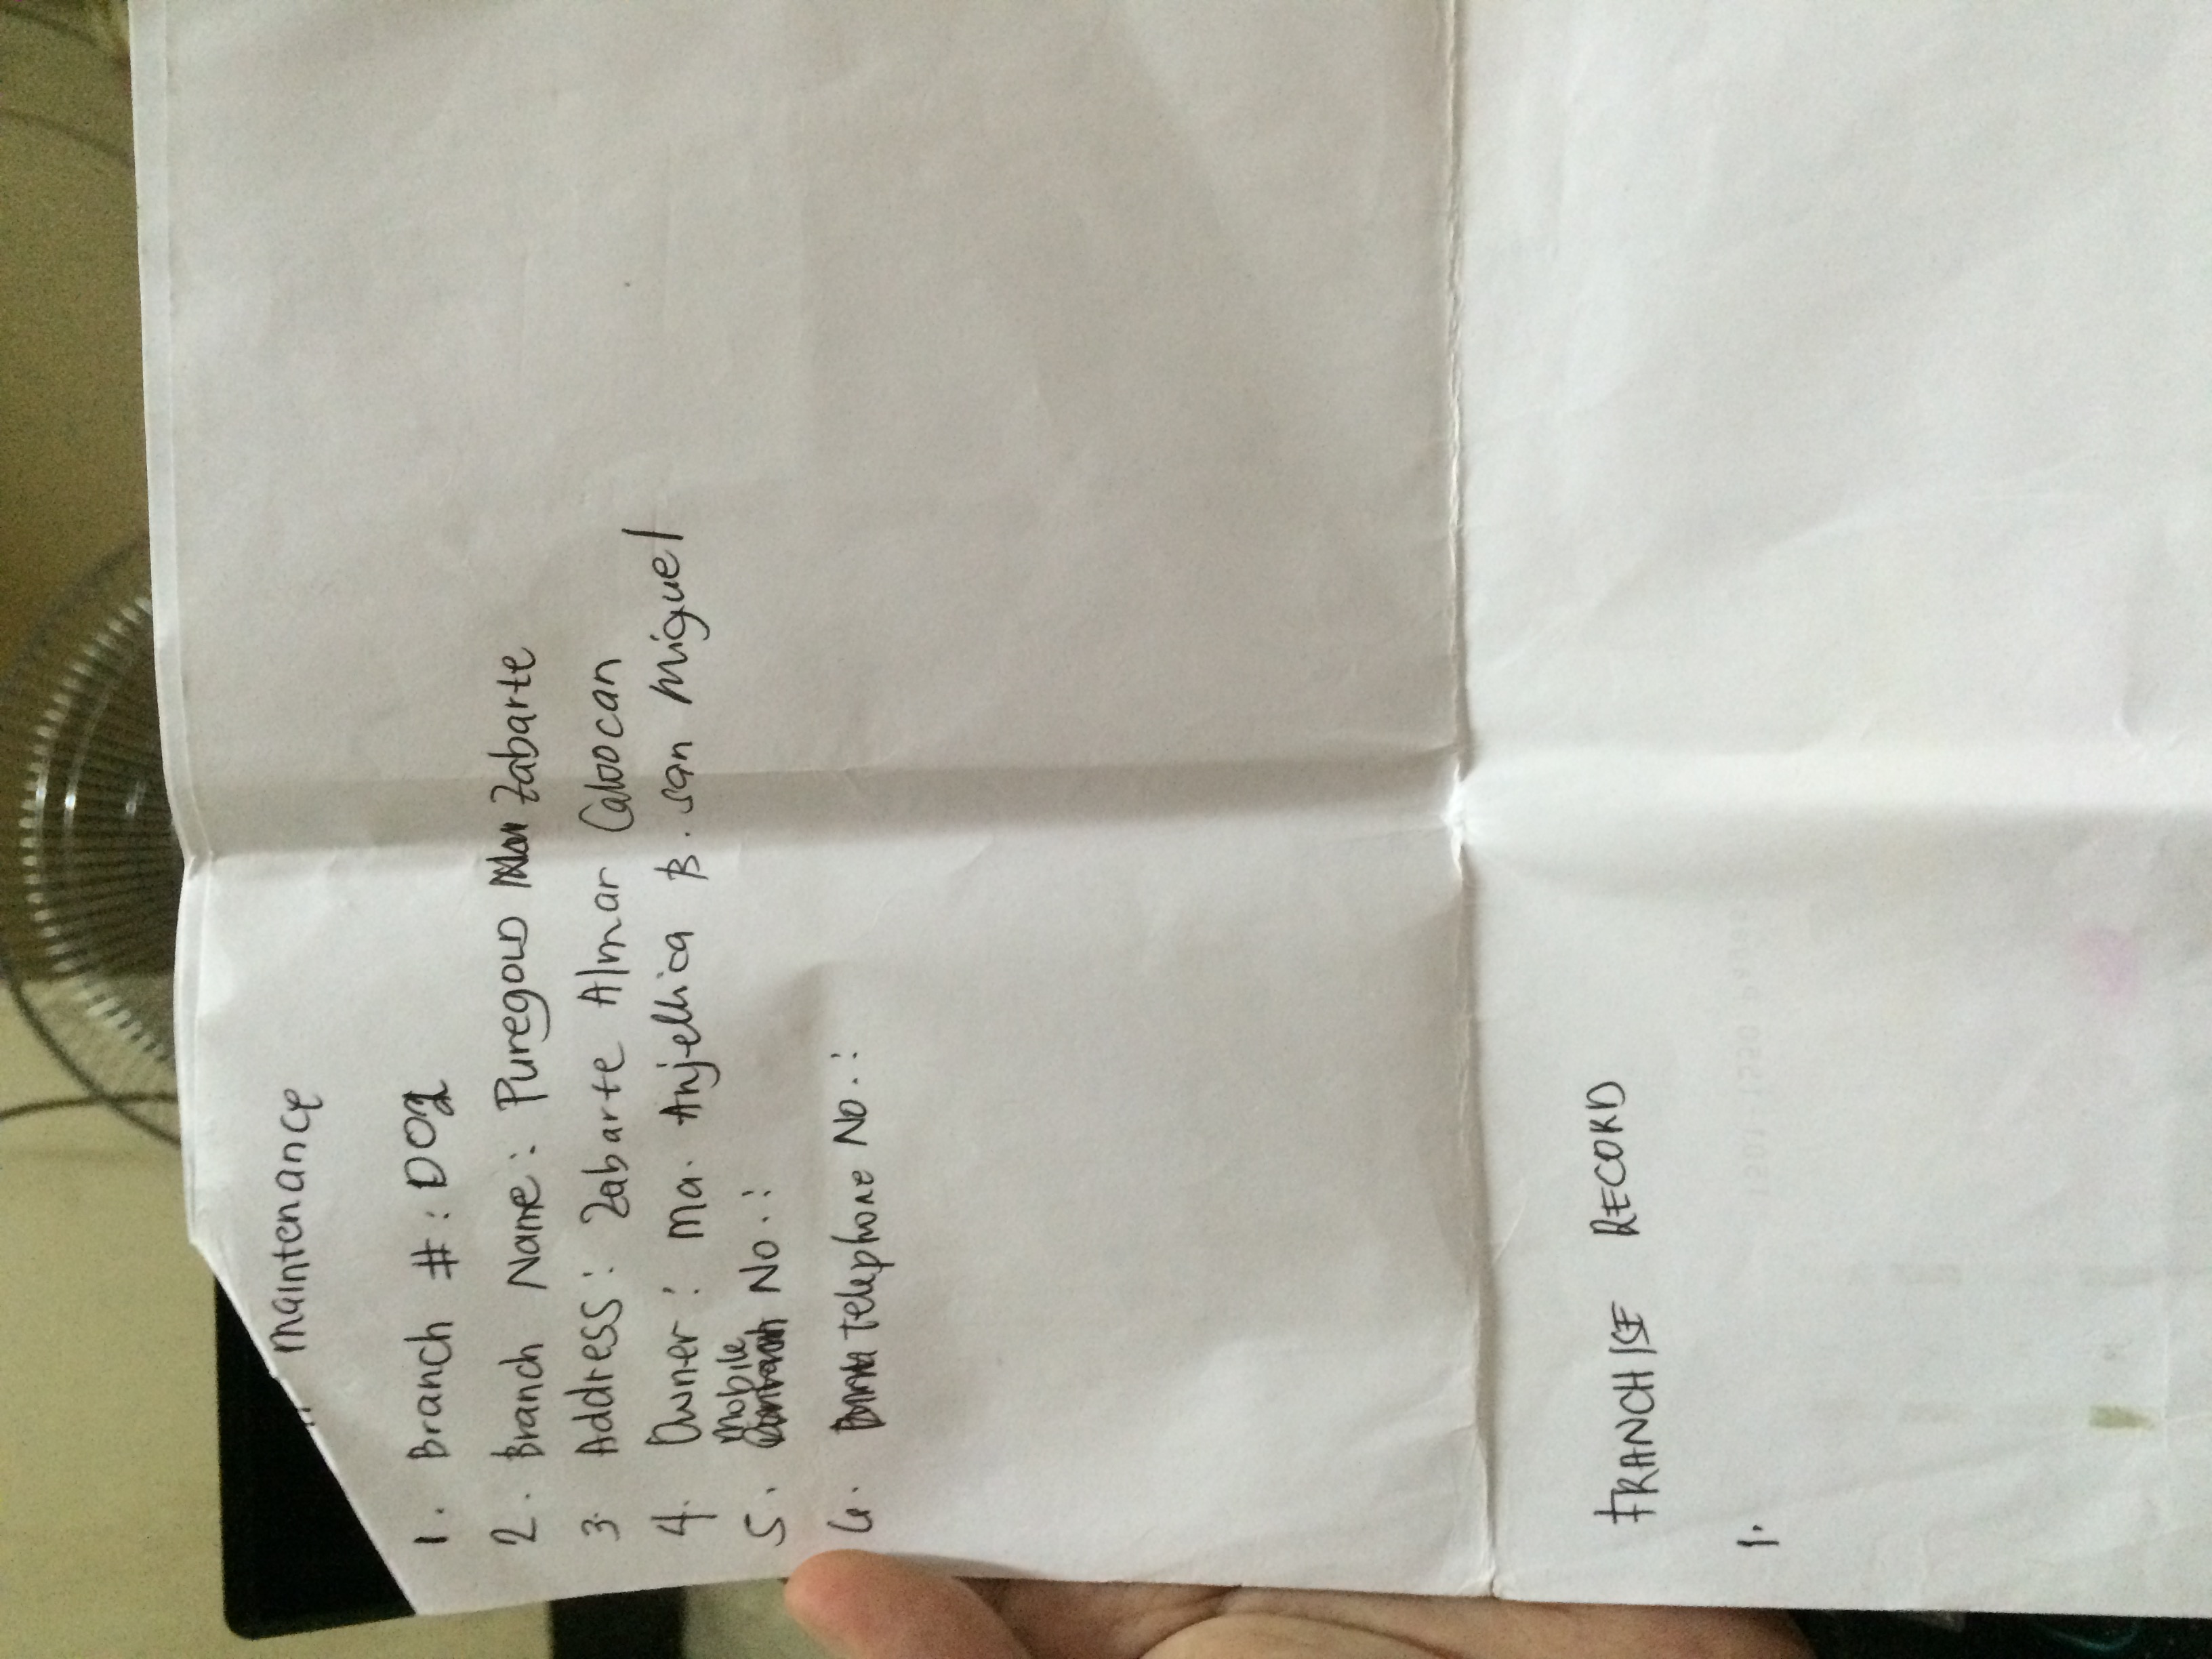 maintenance
1. Branch #: D02
2. Branch Name: Puregold Zabarte
3. Address: Zabarte Almar Caloocan
4. Owner: Ma. Anjellica B. San Miguel
5. Mobile No.:
6. telephone No.:
FRANCHISE RECORD
1.